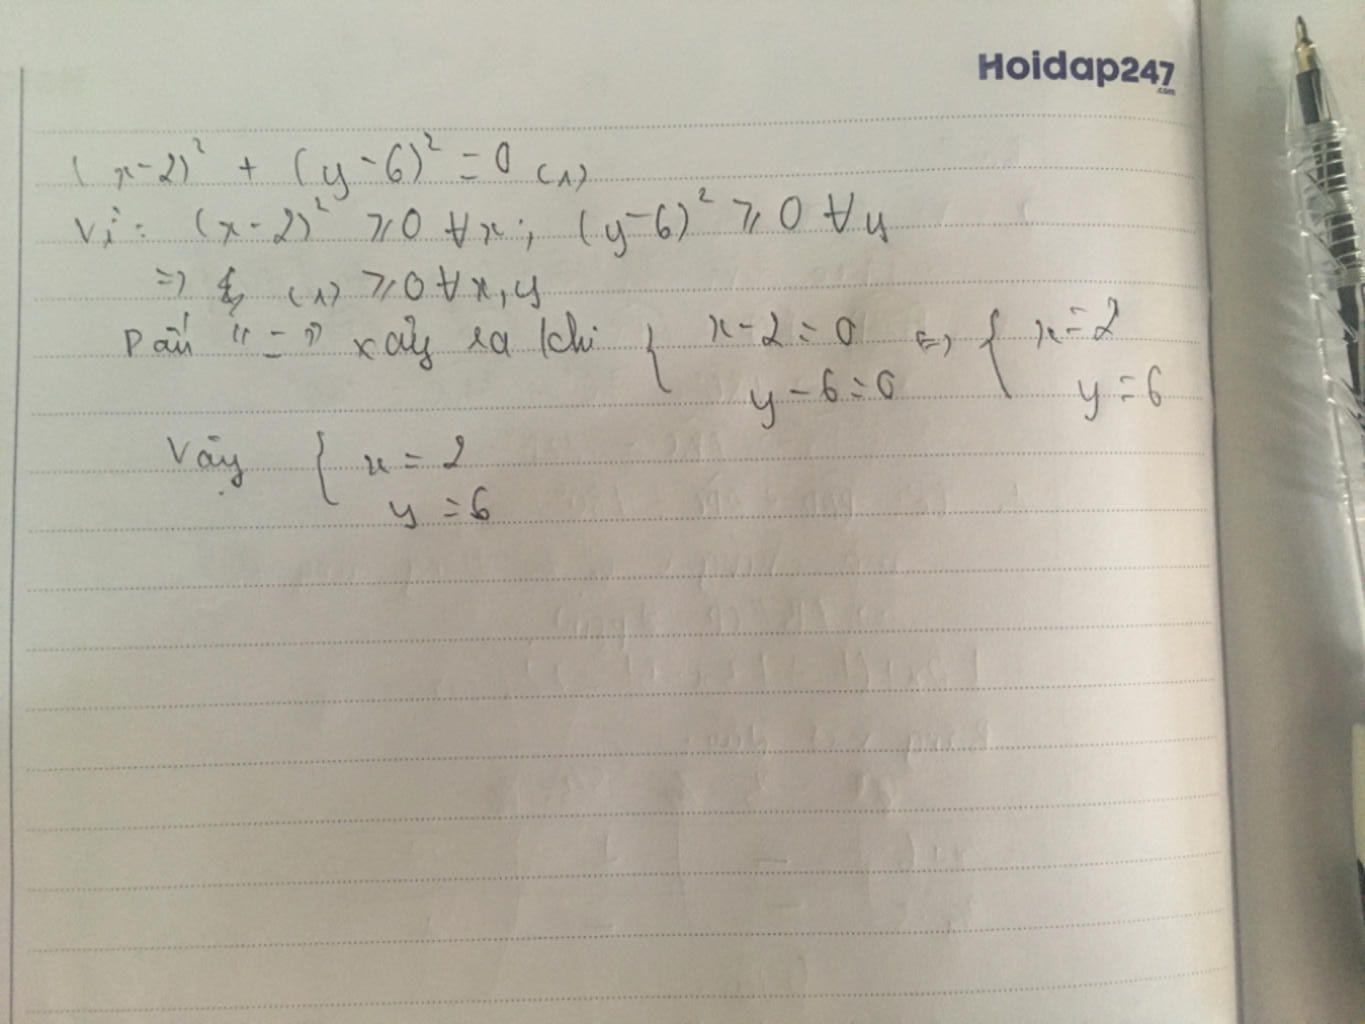 Hoidap247
.com
(x-2)² + (y-6)² = 0 (1)
Vì: (x-2)² ≥ 0 ∀x; (y-6)² ≥ 0 ∀y
=> (1) ≥ 0 ∀x,y
Dấu "=" xảy ra khi { x-2=0 <=> { x=2
y-6=0 y=6
Vậy { x=2
y=6